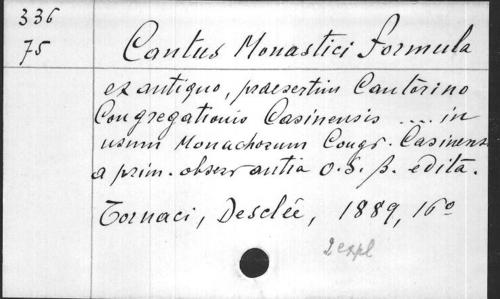 336
75
Cantus Monastici formula
ex antiquo, praesertim Cantorino
Congregationis Casinensis .... in
usum Monachorum Congr. Casinens
a prim. observantia O. S. B. edita.
Tornaci, Desclée, 1889, 16o
2 expl